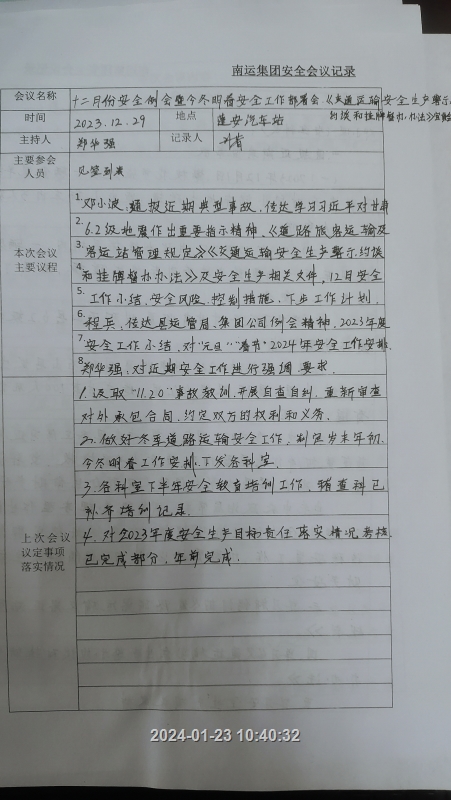 南运集团安全会议记录
会议名称 十二月份安全例会暨今冬明春安全工作部署会《交通运输安全生产警示
约谈和挂牌督办办法》宣贯
时间 2023.12.29 地点 蓬安汽车站
主持人 郑华强 记录人
主要参会人员 见签到表
本次会议主要议程
1.邓小波,通报近期典型事故,传达学习习近平对甘肃
2 6.2级地震作出重要指示精神、《道路旅客运输及
3.客运站管理规定》《交通运输安全生产警示约谈
4 和挂牌督办办法》及安全生产相关文件,12月安全
5.工作小结,安全风险,控制措施,下步工作计划.
6.程兵,传达县运管局、集团公司例会精神,2023年度
7.安全工作小结,对“元旦”“春节”2024年安全工作安排.
8.郑华强,对近期安全工作进行强调、要求.
上次会议议定事项落实情况
1.汲取“11.20”事故教训,开展自查自纠,重新审查
对外承包合同,约定双方的权利和义务.
2.做好冬季道路运输安全工作,制定岁末年初、
今冬明春工作安排,下发各科室.
3.各科室下半年安全教育培训工作,稽查科已
补齐培训记录.
4.对2023年度安全生产目标责任落实情况考核,
已完成部分,年前完成.
2024-01-23 10:40:32